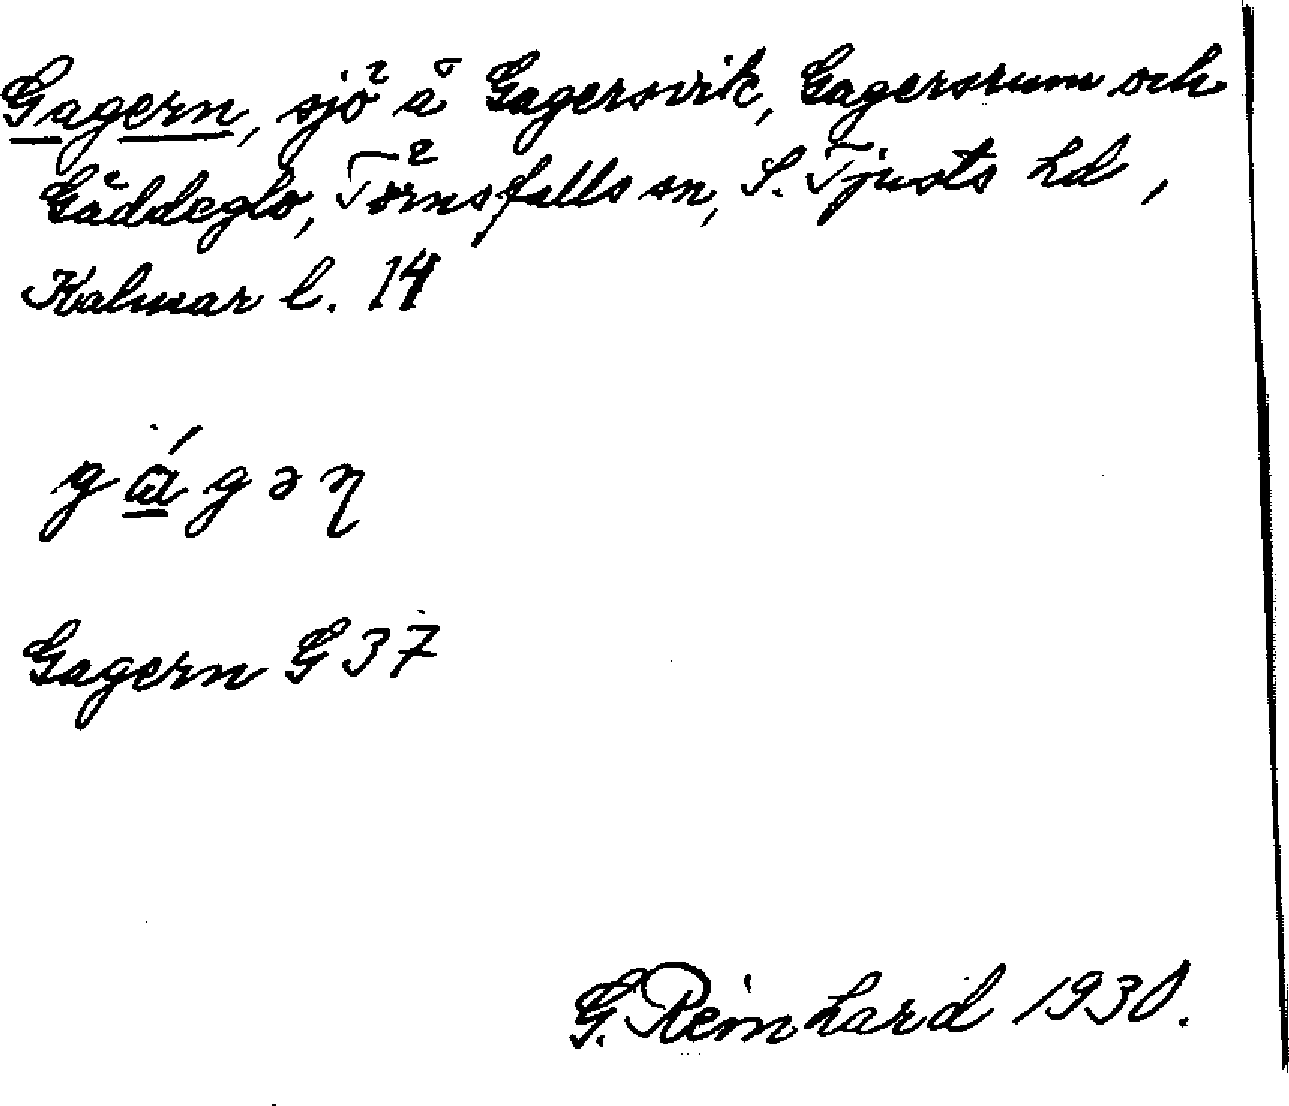 Gagern, sjö å Gagersvik, Gagersrum och
Gäddeglo, Törnsfalls sn, S. Tjusts hd,
Kalmar l. 14
gágəņ
Gagern G 37
G. Reinhard 1930.